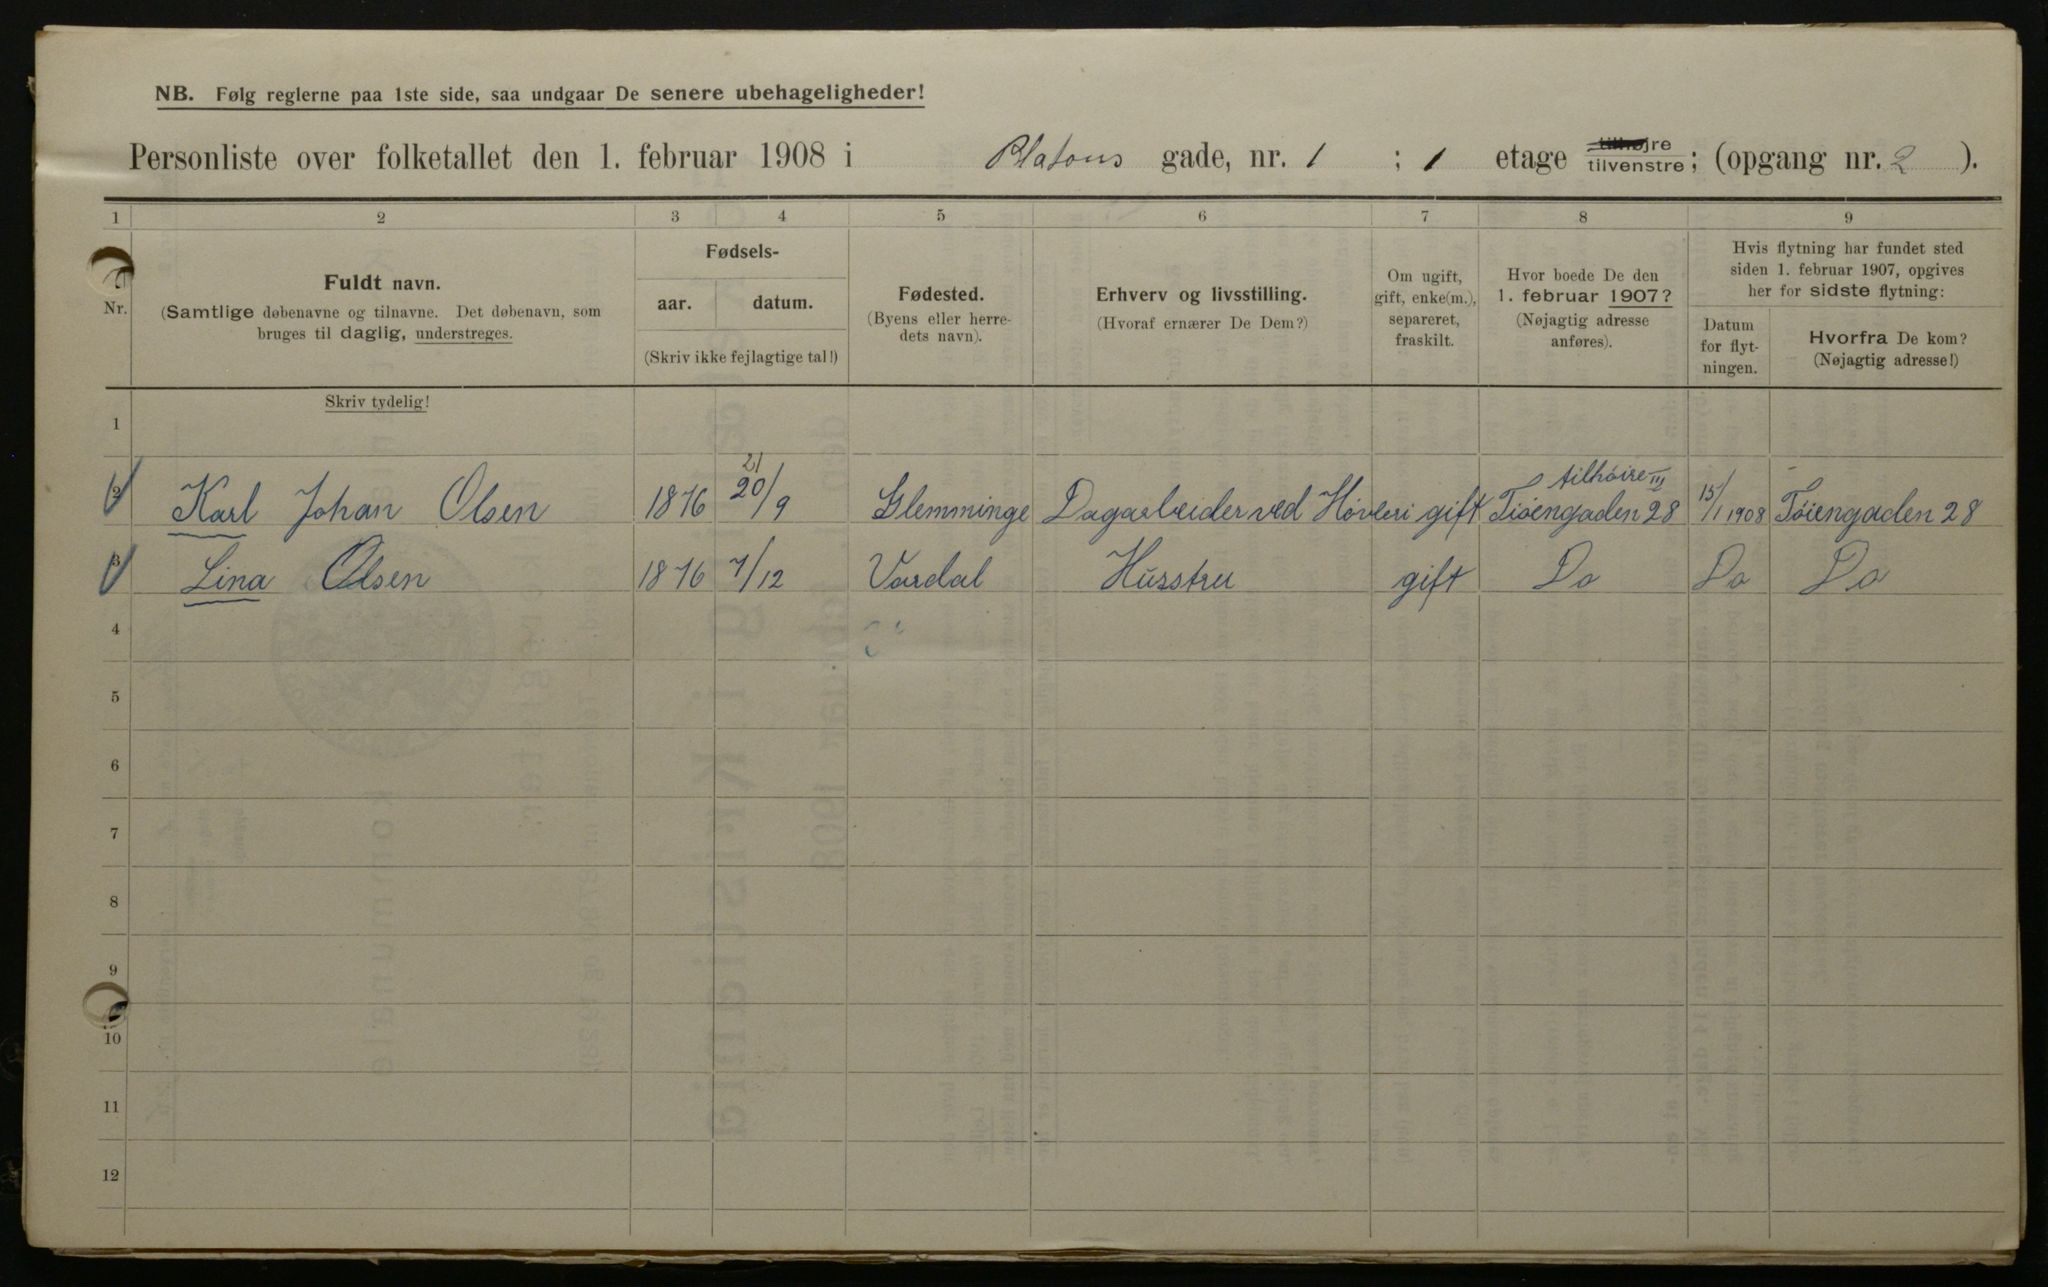 NB. Følg reglerne paa 1ste side, saa undgaar De senere ubehageligheder!
Personliste over folketallet den 1. februar 1908 i Platous gade, nr. 1 ; 1 etage tilhøjre tilvenstre; (opgang nr. 2 ).
1 2 3 4 5 6 7 8 9
Nr.
Fuldt navn.
(Samtlige døbenavne og tilnavne. Det døbenavn, som
bruges til daglig, understreges.
Fødsels-
aar. datum.
(Skriv ikke fejlagtige tal!)
Fødested.
(Byens eller herre-
dets navn).
Erhverv og livsstilling.
(Hvoraf ernærer De Dem?)
Om ugift,
gift, enke(m.),
separeret,
fraskilt.
Hvor boede De den
1. februar 1907?
(Nøjagtig adresse
anføres).
Hvis flytning har fundet sted
siden 1. februar 1907, opgives
her for sidste flytning:
Datum
for flyt-
ningen.
Hvorfra De kom?
(Nøjagtig adresse!)
Skriv tydelig!
1
21 tilhøire III
2 Karl Johan Olsen 1876 20/9 Glemminge Dagarbeider ved Høvleri gift Tiøengaden 28 15/1 1908 Tøiengaden 28
3 Lina Olsen 1876 7/12 Vardal Husstru gift Do Do Do
4
5
6
7
8
9
10
11
12